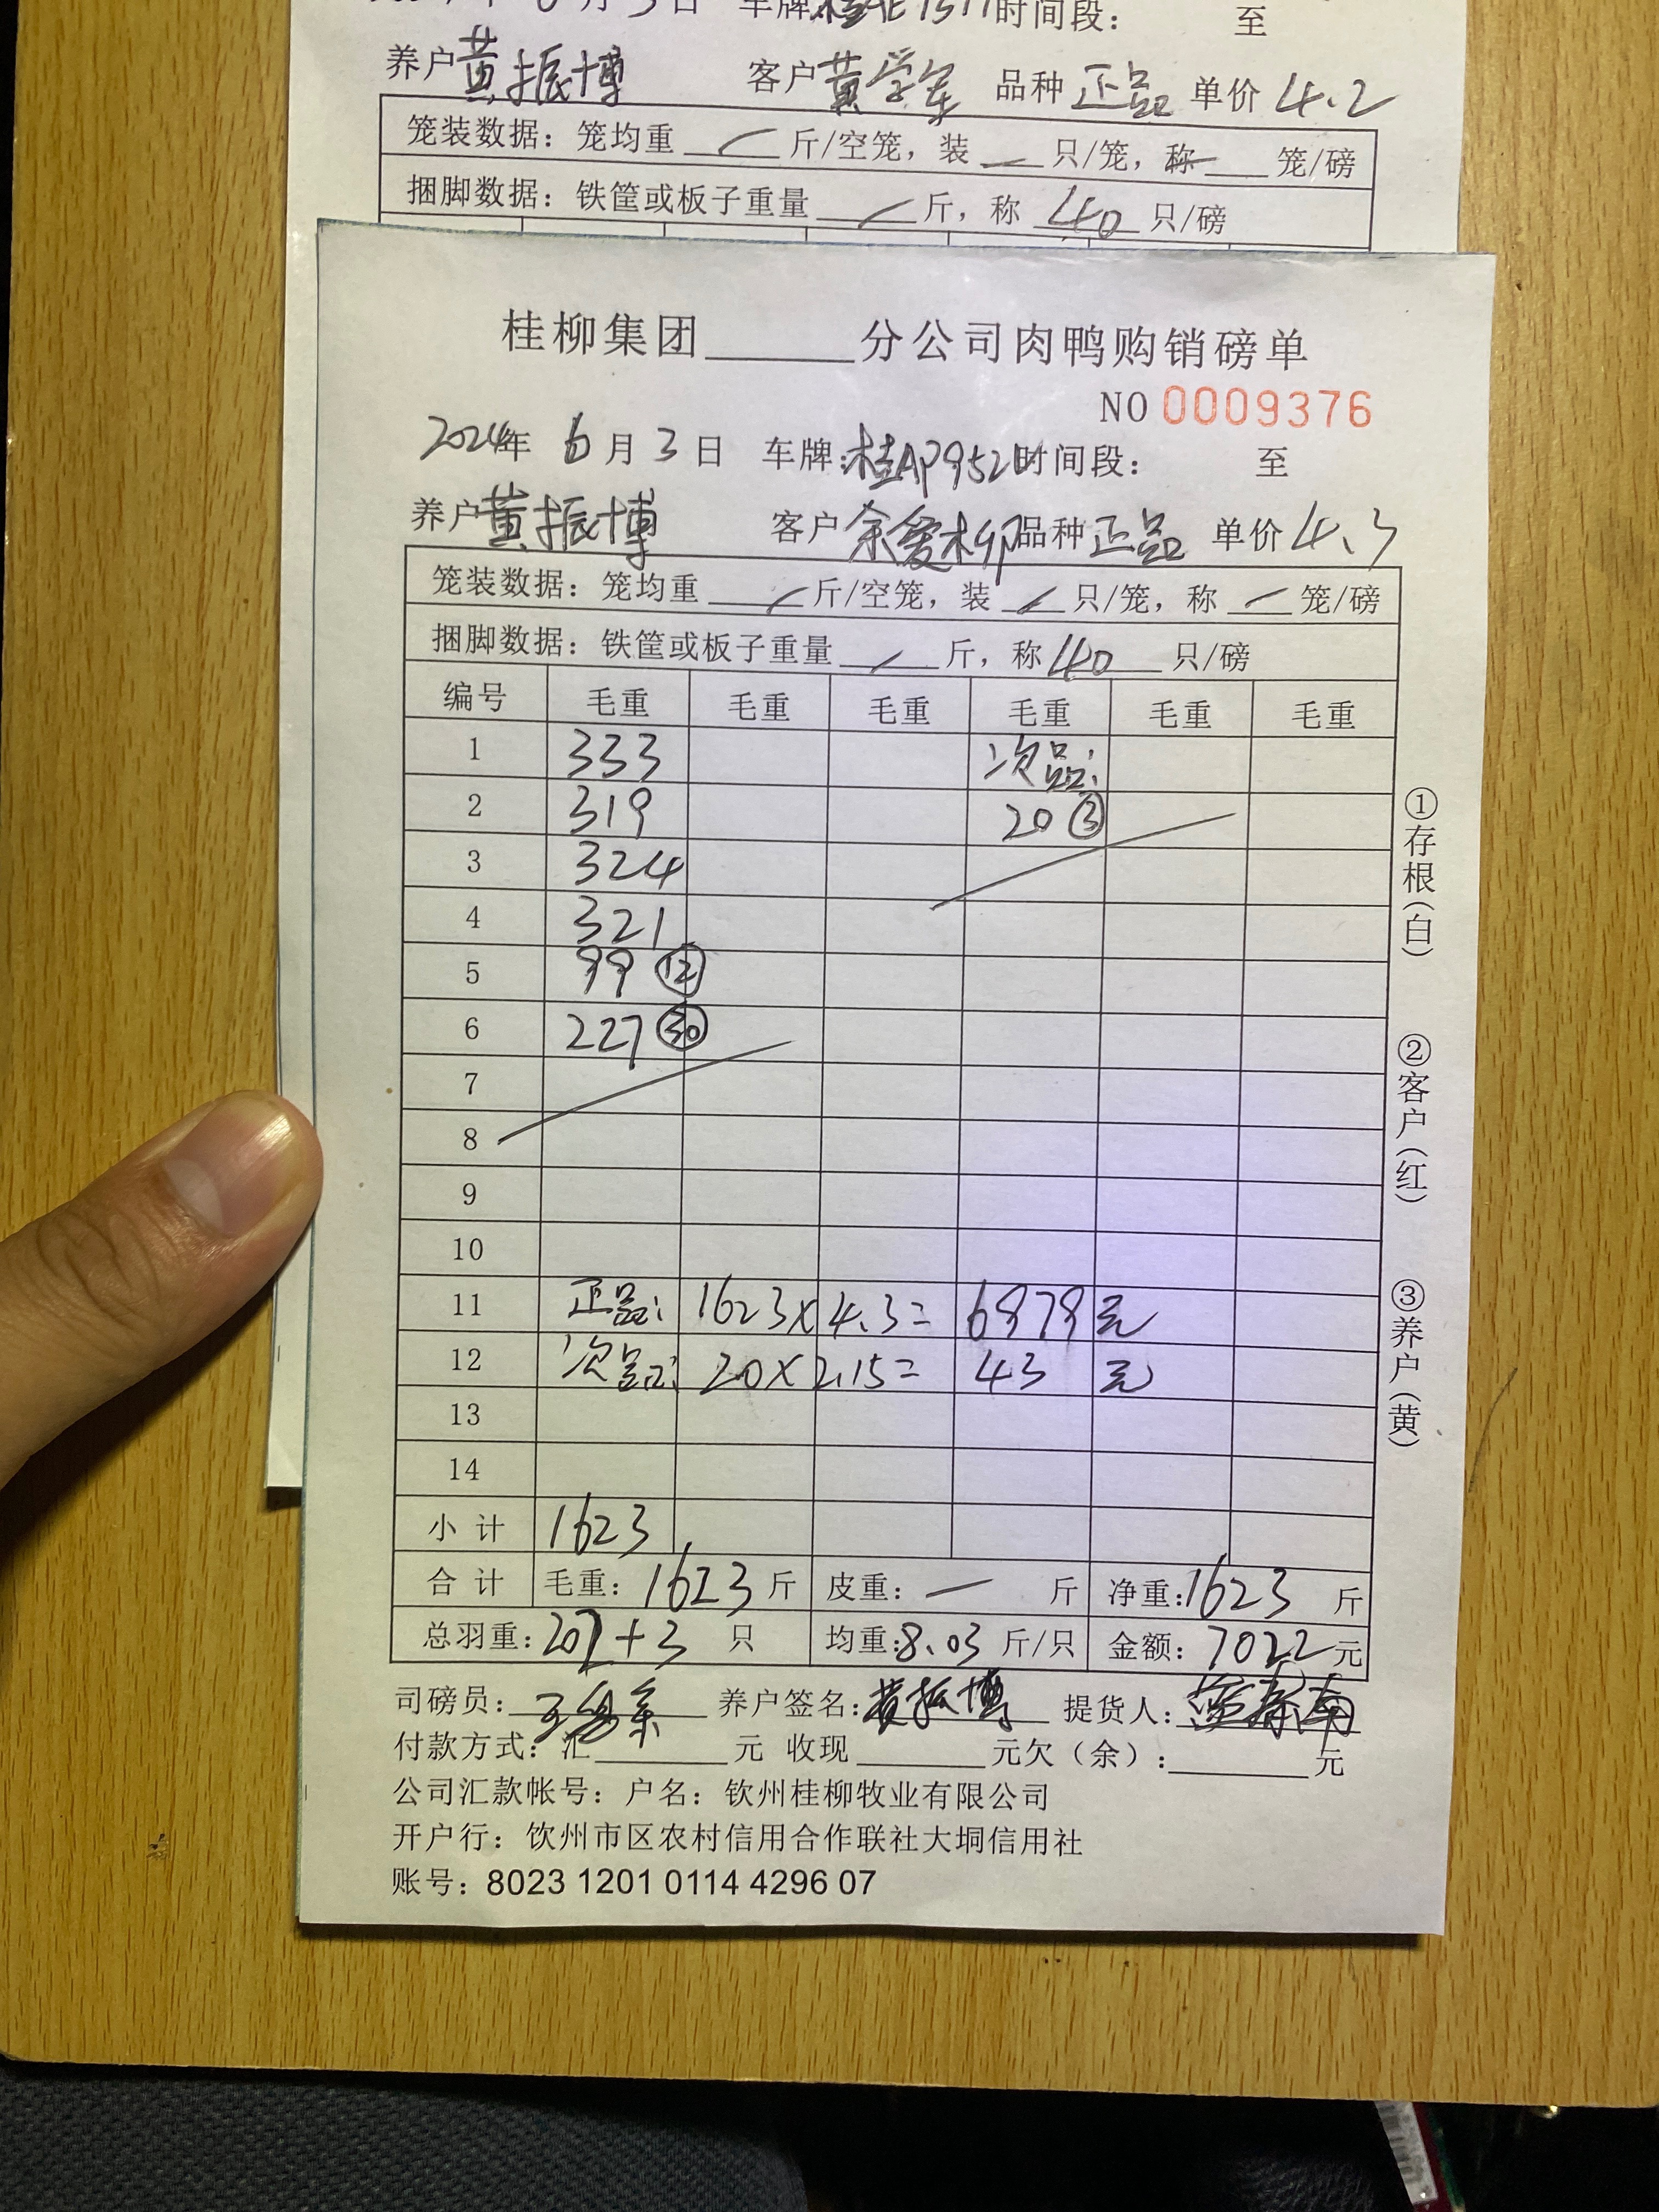 月3日 车牌: 时间段: 至
养户 黄振博 客户 黄学军 品种 正品 单价 4.2
笼装数据: 笼均重 斤/空笼, 装 只/笼, 称 笼/磅
捆脚数据: 铁筐或板子重量 斤, 称 40 只/磅
桂柳集团______分公司肉鸭购销磅单
NO 0009376
2024年 6月3日 车牌:桂AP952 时间段: 至
养户 黄振博 客户 余爱柳 品种 正品 单价 4.3
笼装数据: 笼均重 斤/空笼, 装 只/笼, 称 笼/磅
捆脚数据: 铁筐或板子重量 斤, 称 40 只/磅
编号 毛重 毛重 毛重 毛重 毛重 毛重
1 333 次品:
2 319 20 ③
3 324
4 321
5 99 ⑫
6 227 ㉚
7
8
9
10
11 正品: 1623×4.3= 6979 元
12 次品: 20×2.15= 43 元
13
14
小计 1623
合计 毛重: 1623 斤 皮重: — 斤 净重: 1623 斤
总羽重: 202+3 只 均重: 8.03 斤/只 金额: 7022 元
司磅员: 养户签名: 黄振博 提货人:
付款方式: 汇______元 收现______元欠(余):______元
公司汇款帐号: 户名: 钦州桂柳牧业有限公司
开户行: 钦州市区农村信用合作联社大垌信用社
账号: 8023 1201 0114 4296 07
①存根(白)
②客户(红)
③养户(黄)